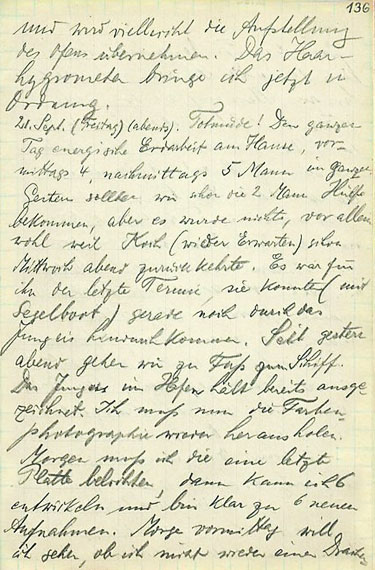 136
und wird vielleicht die Aufstellung
des Ofens übernehmen. Das Haar-
hygrometer bringe ich jetzt in
Ordnung.
21. Sept. (Freitag) (abends). Totmüde! Den ganzen
Tag energische Erdarbeit am Hause, vor-
mittags 4, nachmittags 5 Mann im ganzen.
Gestern sollten wir schon die 2 Mann Hülfe
bekommen, aber es wurde nichts, vor allem
wohl weil Koch (wieder Erwarten) schon
Mittwoch abend zurückkehrte. Es war für
ihn der letzte Termin, sie konnten (mit
Segelboot) gerade noch durch das
Jungeis hindurchkommen. Seit gestern
abend gehen wir zu Fuß zum Schiff.
Das Jungeis im Hafen hält bereits ausge-
zeichnet. Ich muß nun die Farben-
photographie wieder herausholen.
Morgen muß ich die eine letzte
Platte belichten, dann kann ich 6
entwickeln und bin klar zu 6 neuen
Aufnahmen. Morgen vormittag will
ich sehen, ob ich nicht wieder einen Drachen-